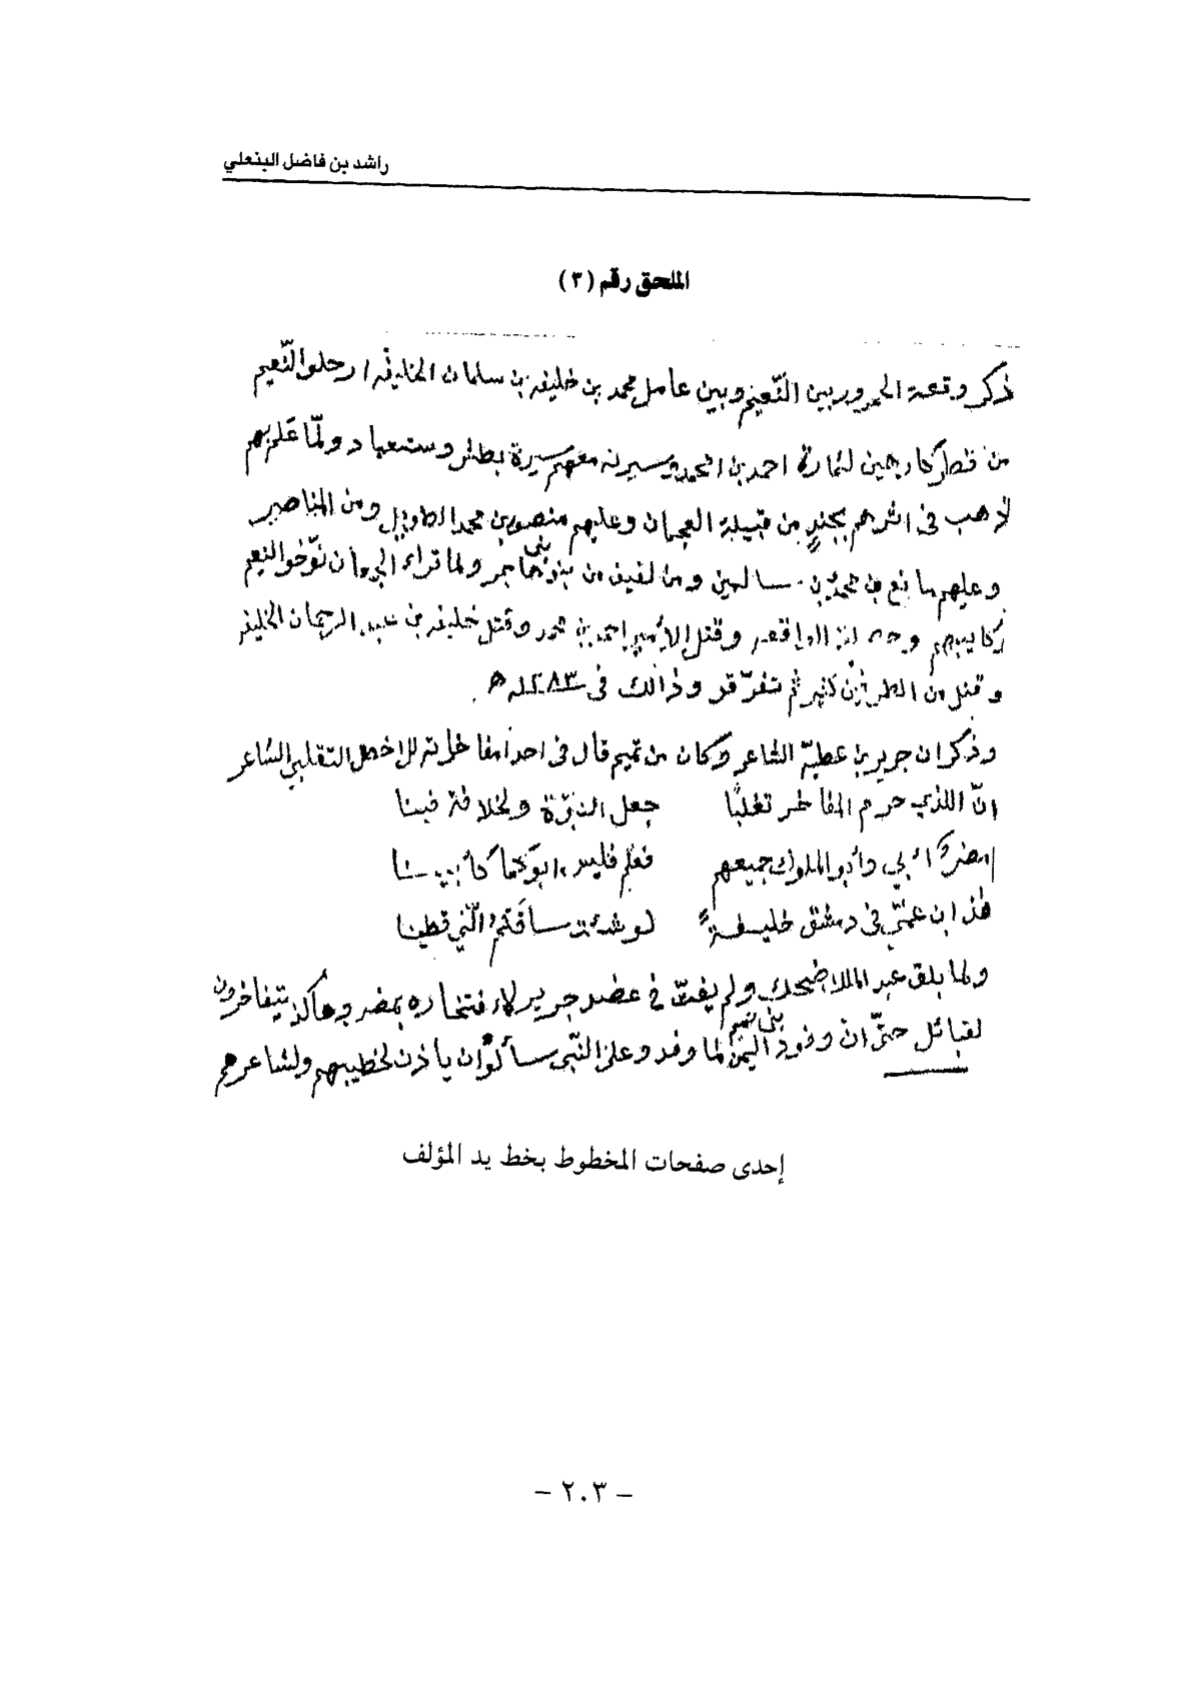 راشد بن فاضل البنعلي
الملحق رقم (٣)
ذكر وقعة الحمرور بين النّعيم وبين عامل محمد بن خليفه بن سلمان الخليفه ارحلوا النّعيم
من قطر كارجين لثمارة احمد بن المحمد وسيرته معهم سيرة بطش وستعباد ولمّا عَلم بهم
لذهب في اثرهم بجندٍ من قبيلة العجمان وعليهم منصور بن محمد الطويل ومن المناصير
وعليهم مانع بن محمد بن سالمين ومن لفيف من بنى هاجر ولما تراء الجمعان نوّخو النعيم
ركايبهم و الواقعه وقتل الأمير احمد بن محمد وقتل خليفه بن عبد الرحمان الخليفه
وقتل من الطرفين كثير ثم تفرّقو وذالك فى ١٢٨٣ﻫ
وذكر ان جرير بن عطيّه الشاعر وكان من تميم قال في احدا مفاخرته للاخطل التقلبي الشاعر
انّ اللذي حرم المفاخر تغلبًا جعل النبوّة ولخلافة فينا
امضر ابي وأبو الملوك جميعهم فعلم فليس ابوكما كأبينا
هذ ابن عمّي في دمشق خليفةً لو شئت ساقكمُ الّتي قطينا
ولما بلق عبد الملا ضحك ولم يفتّ في عضد جرير لاءفتخاره بمضر وهاكذ يتفاخرون
لقبائل حتّى ان وفود اليمن بنى تميم لما وفد وعلى النّبي سألوا ان ياذن لخطيبهم ولشاعرهم
إحدى صفحات المخطوط بخط يد المؤلف
- ٢٠٣ -